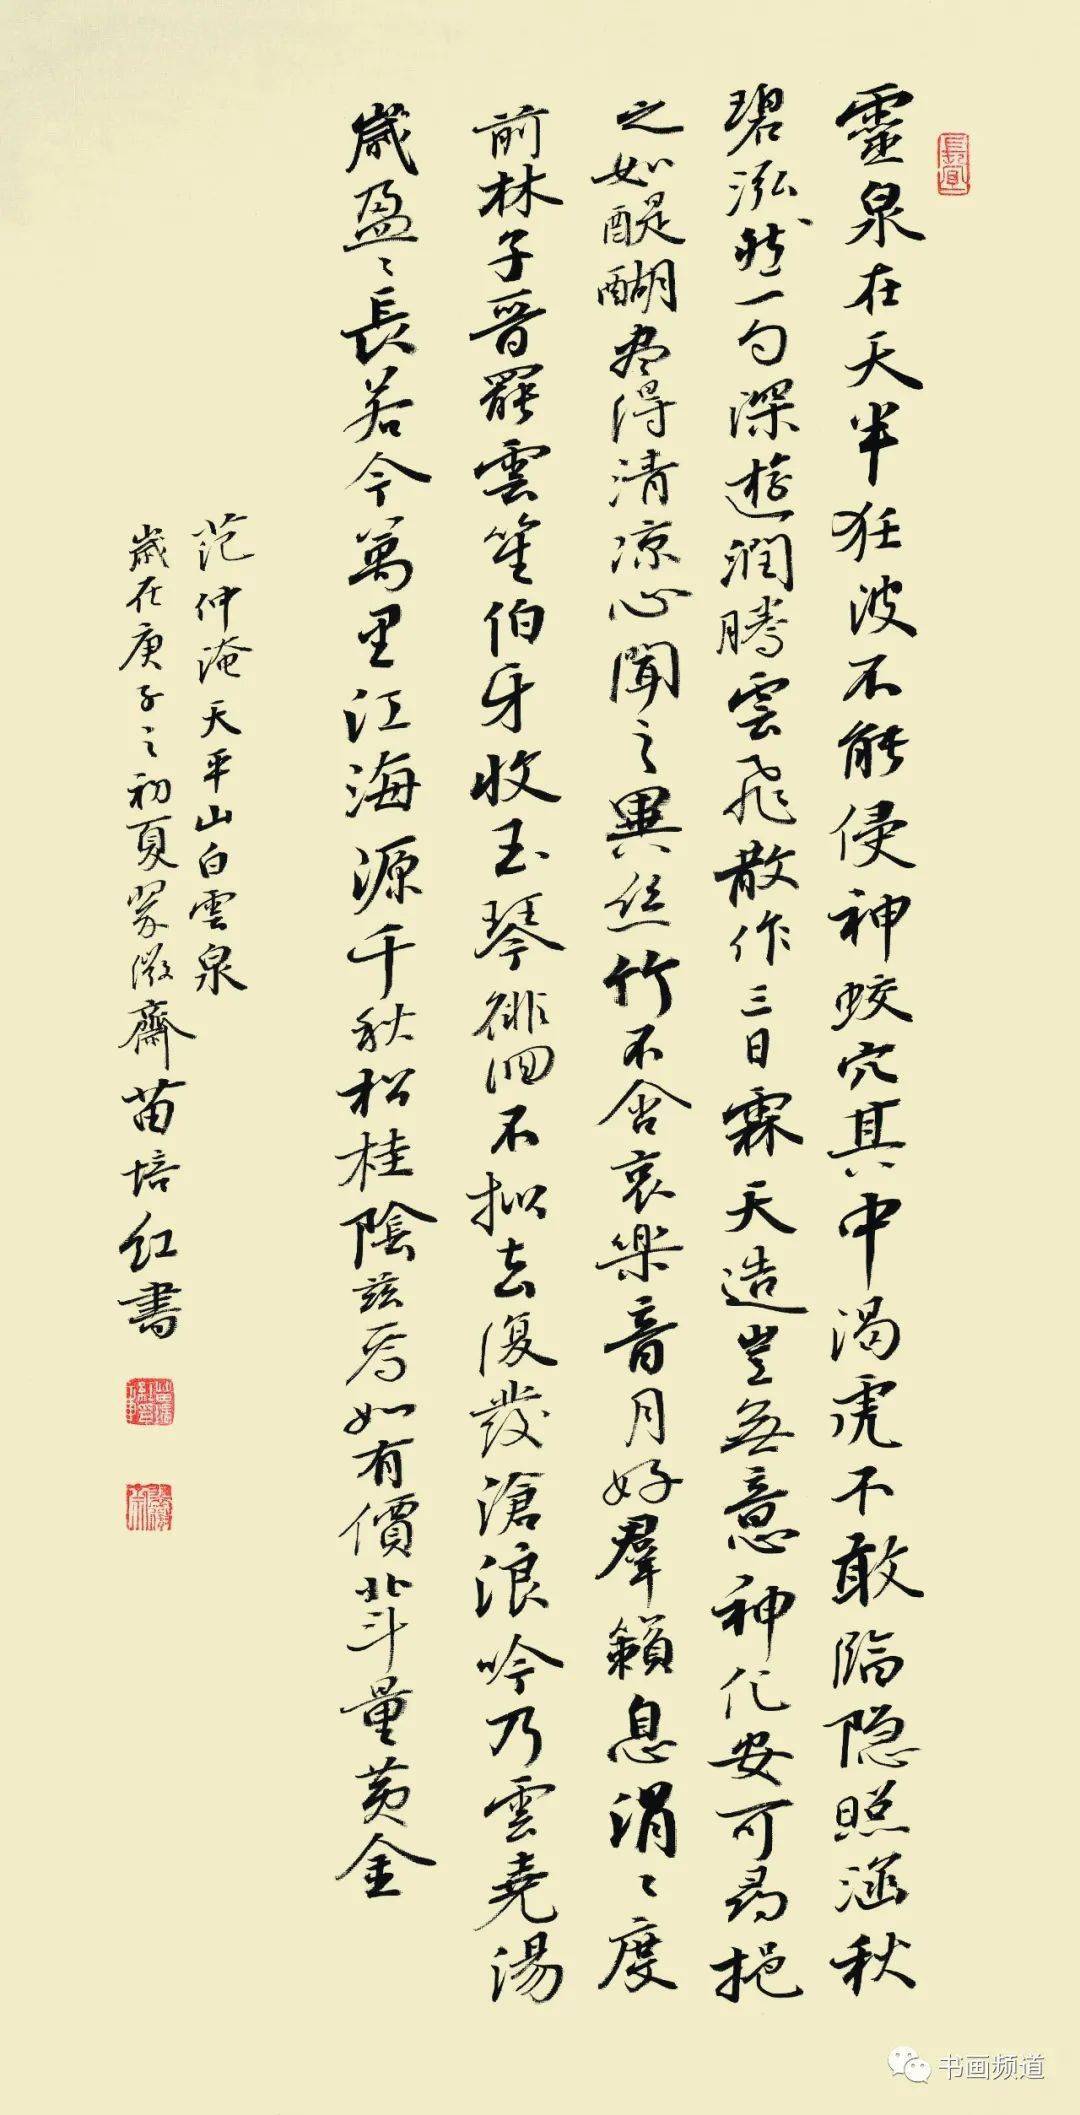 靈泉在天半狂波不能侵神蛟穴其中渴虎不敢臨隐照涵秋
碧泓然一勺深遊潤騰雲飛散作三日霖天造豈無意神化安可尋挹
之如醍醐尽得清凉心聞之異丝竹不含哀樂音月好羣籟息涓〻度
前林子晋罷雲笙伯牙收玉琴徘徊不拟去復發滄浪吟乃雲堯湯
歲盈〻長若今萬里江海源千秋松桂陰兹焉如有價北斗量黄金
范仲淹天平山白雲泉
歲在庚子之初夏翠微齋苗培红書
書画频道